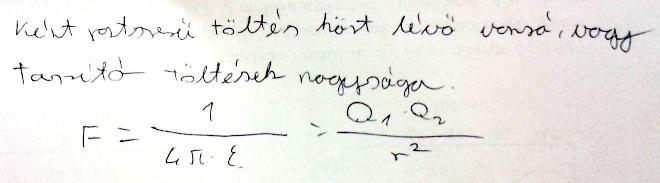 Két pontszerű töltés közt lévő vonzó, vagy
taszító töltések nagysága.
F = 1 / 4π·ε · Q1·Q2 / r²